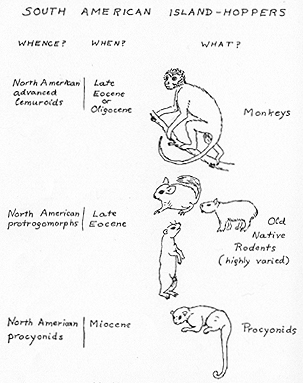 SOUTH AMERICAN ISLAND-HOPPERS
WHENCE? WHEN? WHAT?
North American
advanced
lemuroids
Late
Eocene
or
Oligocene
Monkeys
North American
protrogomorphs
Late
Eocene
Old
Native
Rodents
(highly varied)
North American
procyonids
Miocene
Procyonids